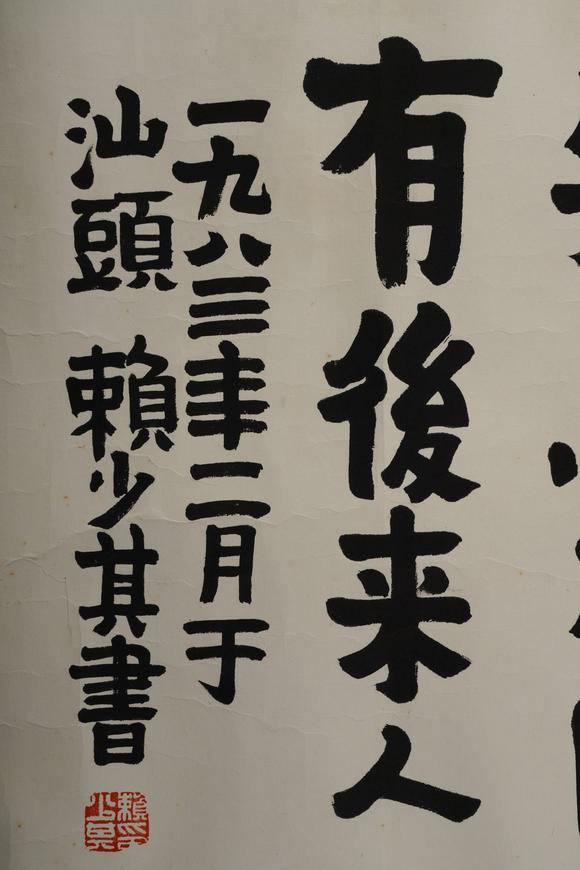 有後来人
一九八三年二月于
汕頭 賴少其書